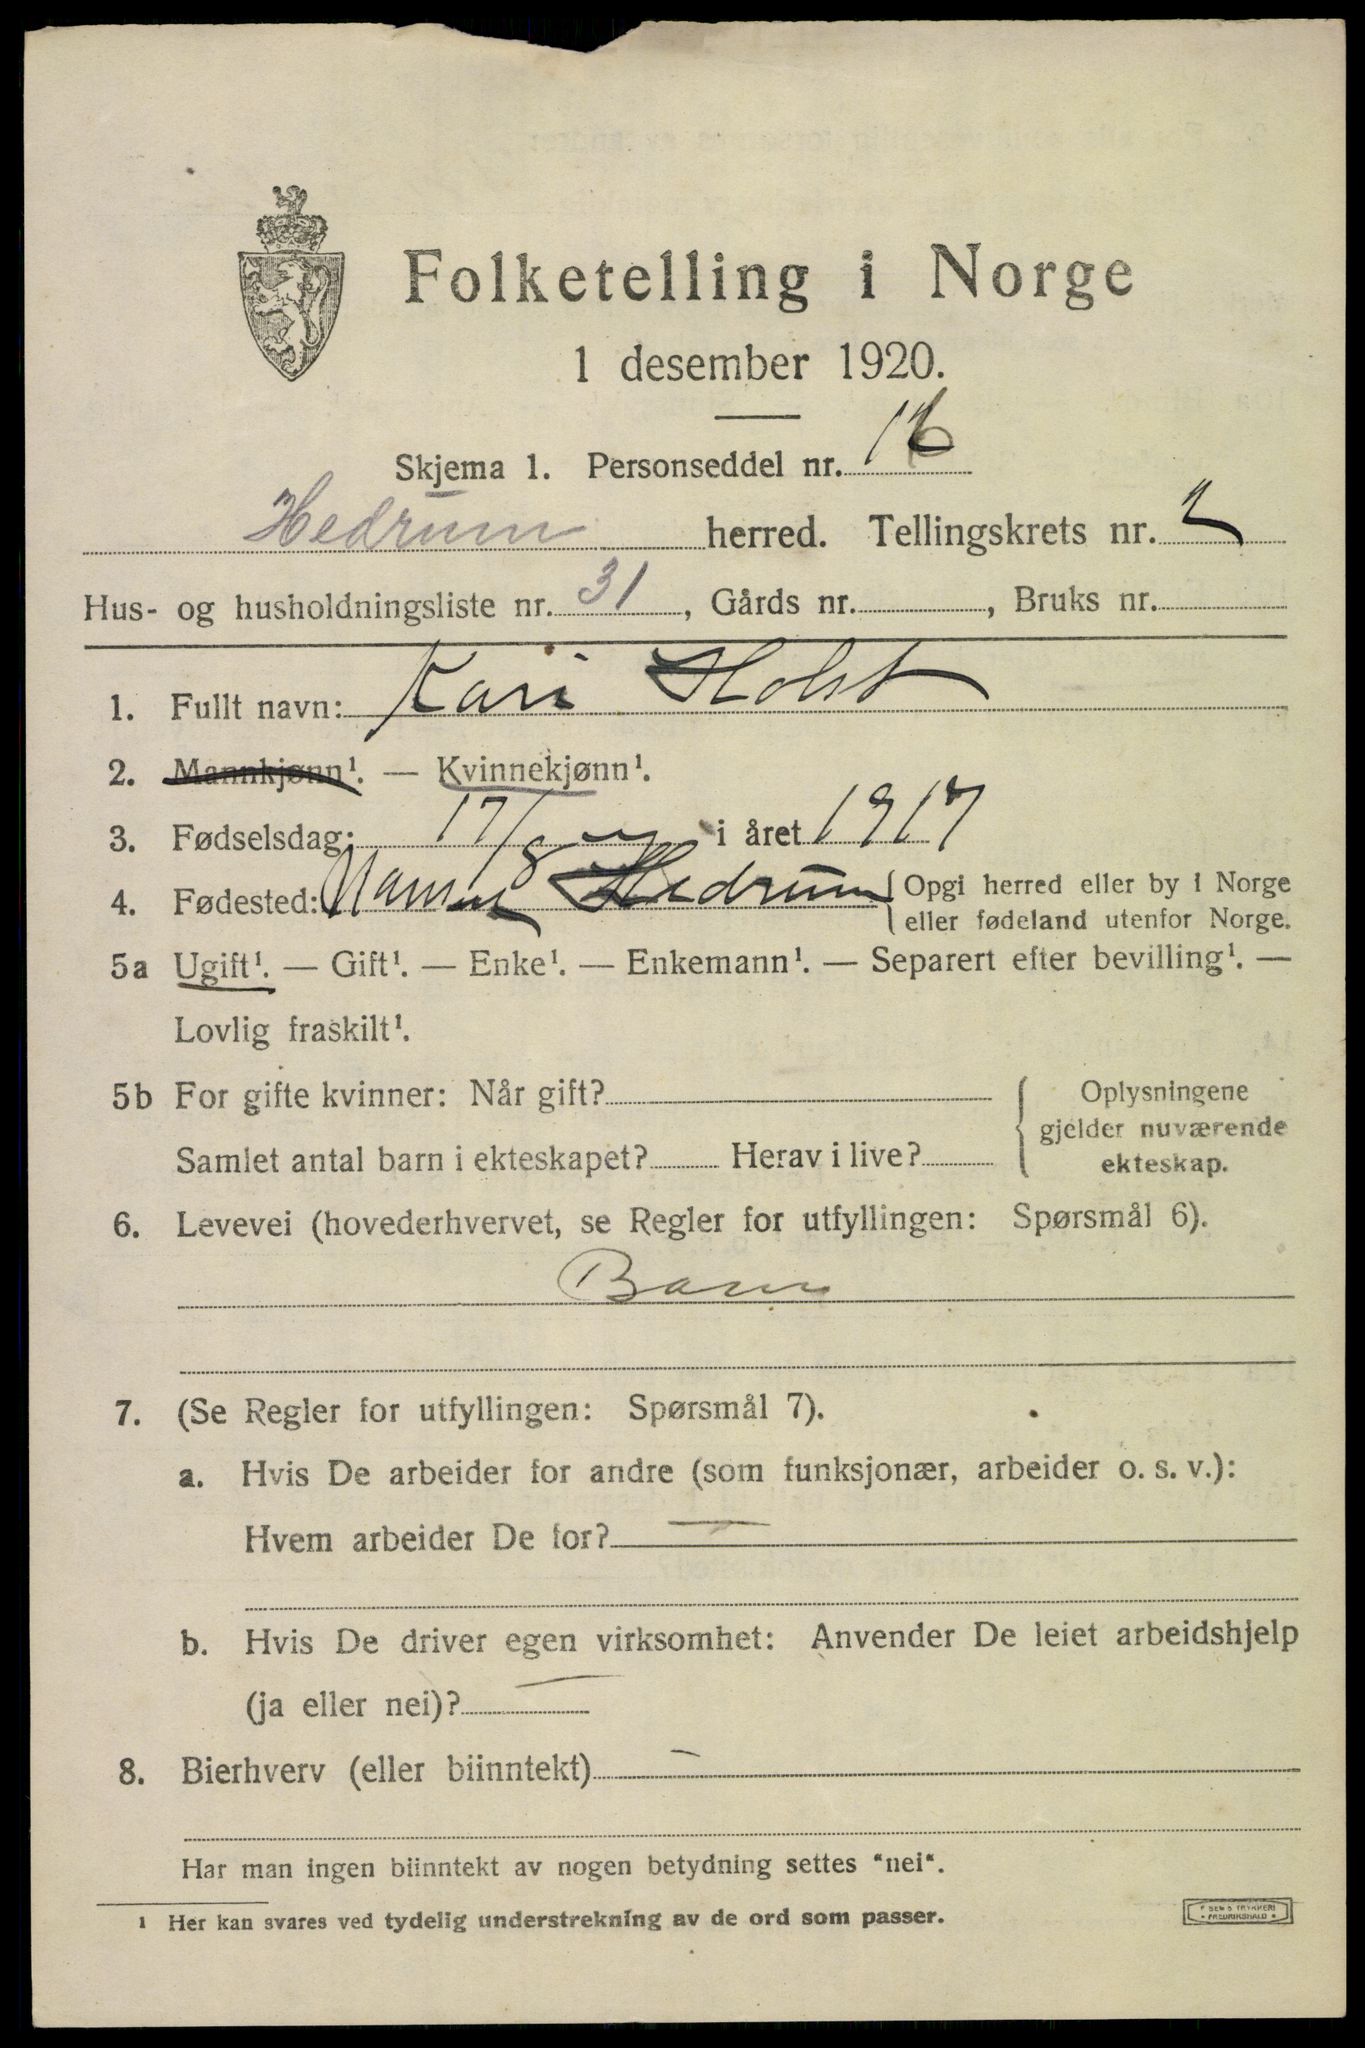 Folketelling i Norge
1 desember 1920.
Skjema 1. Personseddel nr. 16
Hedrum herred. Tellingskrets nr. 2
Hus- og husholdningsliste nr. 31, Gårds nr. , Bruks nr.
1. Fullt navn: Kari Holst
2. Mannkjønn¹. — Kvinnekjønn¹.
3. Fødselsdag: 17/8 i året 1917
4. Fødested: Hedrum Opgi herred eller by i Norge
eller fødeland utenfor Norge.
5a Ugift¹. — Gift¹. — Enke¹. — Enkemann¹. — Separert efter bevilling¹. —
Lovlig fraskilt¹.
5b For gifte kvinner: Når gift? Oplysningene
gjelder nuværende
Samlet antal barn i ekteskapet? Herav i live? ekteskap.
6. Levevei (hovederhvervet, se Regler for utfyllingen: Spørsmål 6).
Barn
7. (Se Regler for utfyllingen: Spørsmål 7).
a. Hvis De arbeider for andre (som funksjonær, arbeider o. s. v.):
Hvem arbeider De for? —
b. Hvis De driver egen virksomhet: Anvender De leiet arbeidshjelp
(ja eller nei)? —
8. Bierhverv (eller biinntekt) —
Har man ingen biinntekt av nogen betydning settes "nei".
¹ Her kan svares ved tydelig understrekning av de ord som passer.
TRYKKERI
FREDRIKSHALD